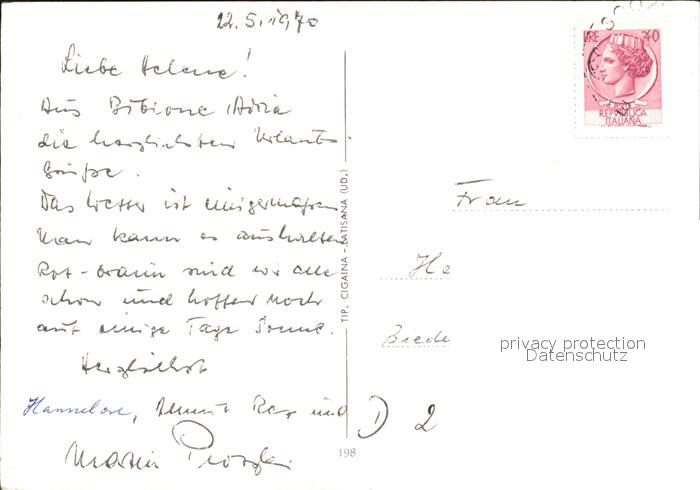 22.5.1970
Liebe Helene!
Aus Bibione/Adria
die herzlichsten Urlaubs-
grüße.
Das Wetter ist einigermaßen
Man kann es aushalten
Rot-braun sind wir alle
schon und hoffen noch
auf einige Tage Sonne.
Herzlichst
Hannelore, und
Maria
TIP. CIGAINA - LATISANA (UD.)
198
LIRE 40
REPVBBLICA
ITALIANA
Frau
He
Biede
privacy protection
Datenschutz
D 2